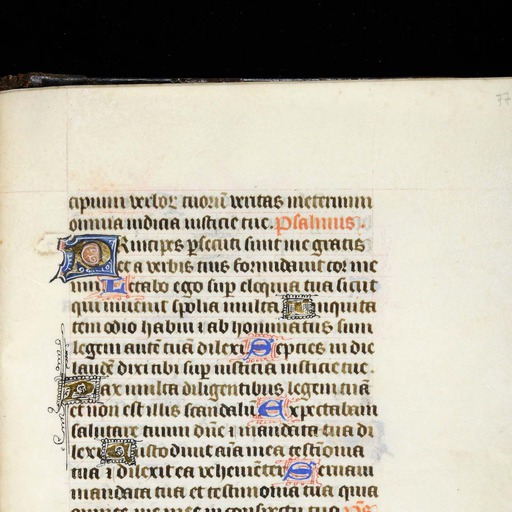 77
cipium verboꝝ tuoꝝ veritas ineternum
omnia iudicia iusticie tue. Psalmus.
Rincipes ꝑsecuti sunt me gratis
et a verbis tuis formidauit cor me
um Letabo ego sup eloquia tua sicut
qui inuenit spolia multa Iniquita
tem odio habui ⁊ ab hominatus sum
legem autē tuā dilexi Septies in die
laudē dixi tibi sup iudicia iusticie tue.
Pax multa diligentibus legem tuā
et non est illis scandalū Expectabam
salutare tuum dn̄e ⁊ mandata tua di
lexi Custodiuit aīa mea testīonia
tua ⁊ dilexit ea vehementer Seruaui
mandata tua et testimonia tua quia
omnes vie mee in conspectu tuo ps